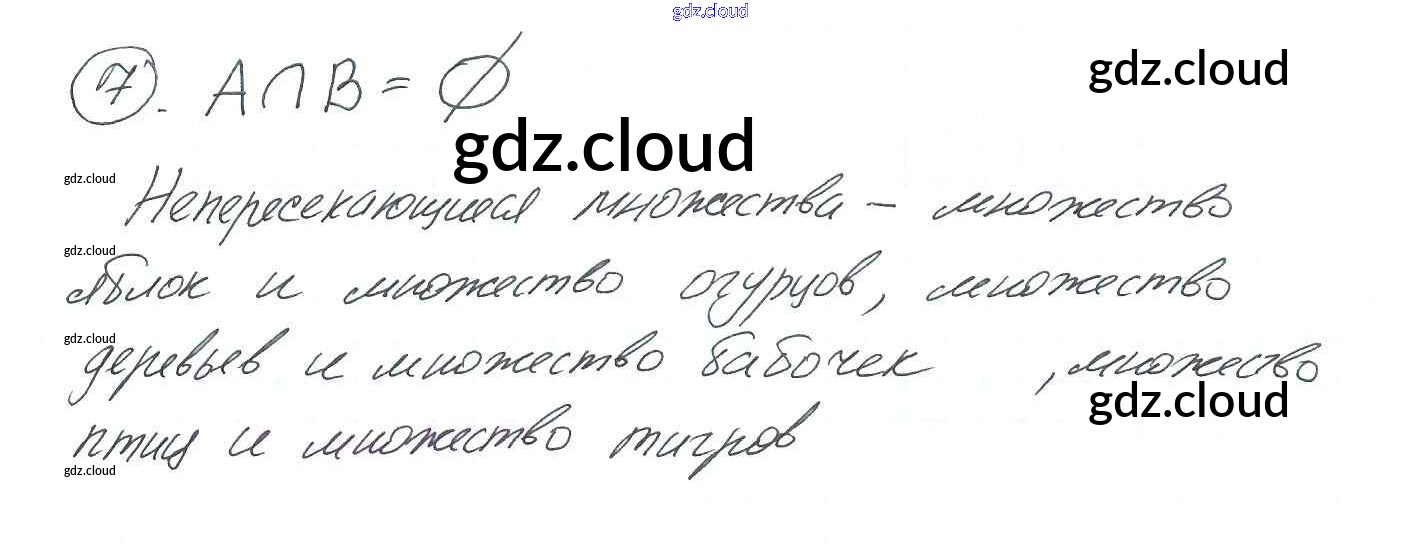 gdz.cloud
7. A ∩ B = ∅
gdz.cloud
gdz.cloud
gdz.cloud
Непересекающиеся множества – множество
gdz.cloud
яблок и множество огурцов, множество
gdz.cloud
деревьев и множество бабочек , множество
gdz.cloud
птиц и множество тигров
gdz.cloud